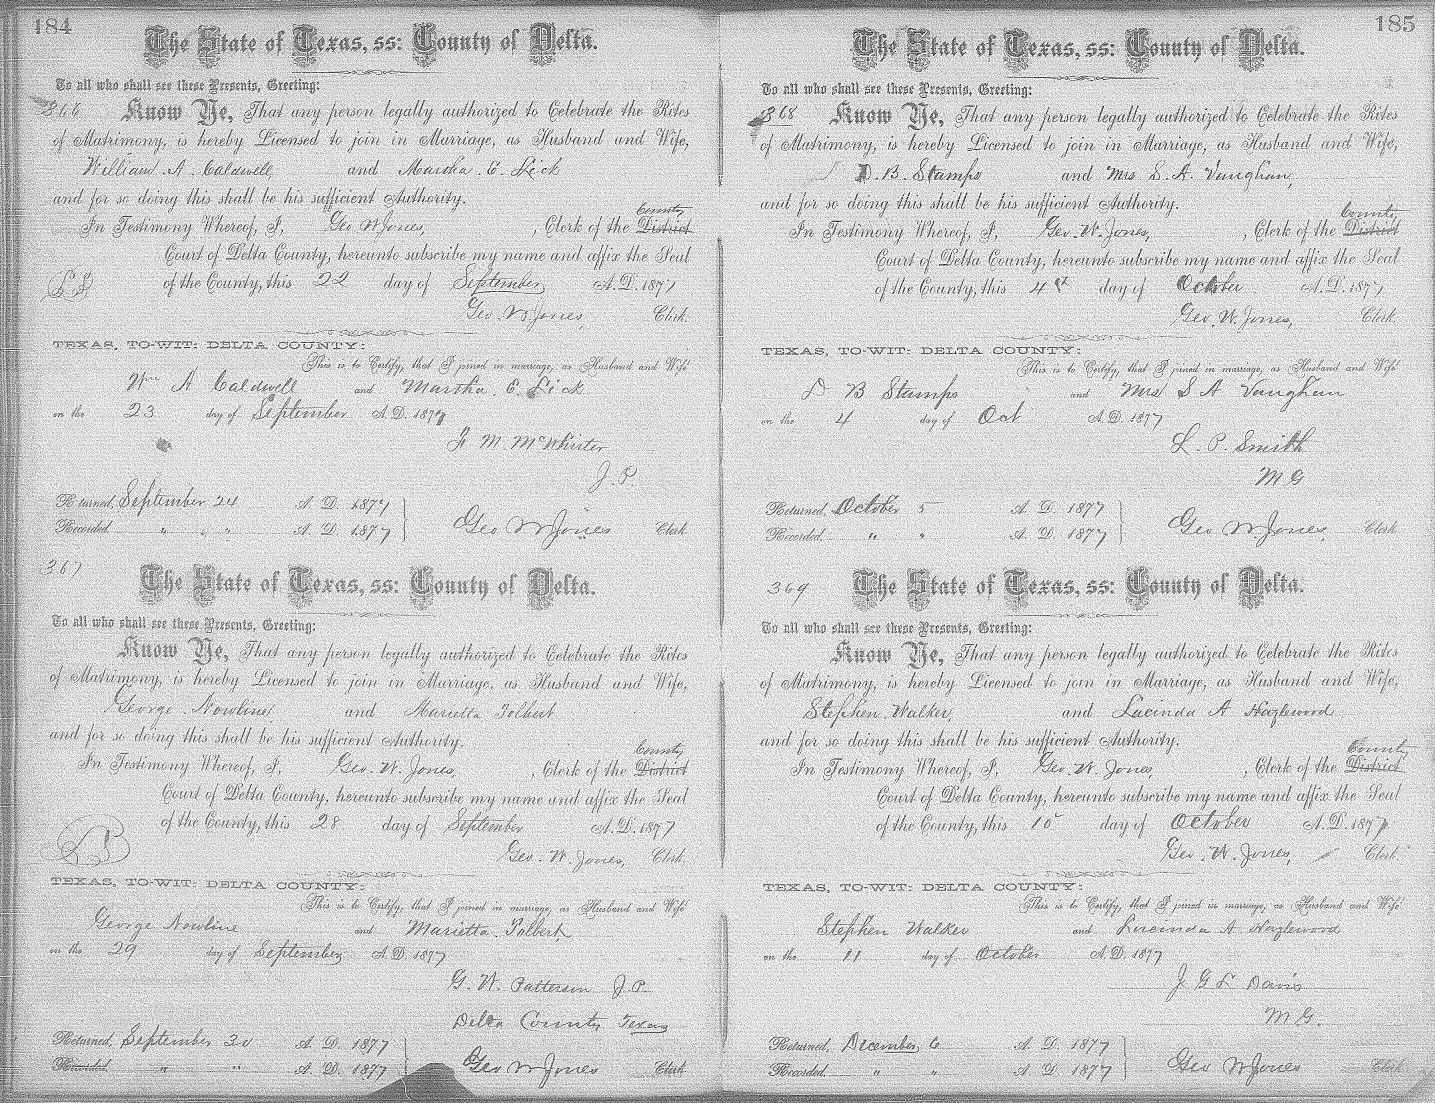 184
The State of Texas, ss: County of Delta.
To all who shall see these Presents, Greeting:
366 Know Ye, That any person legally authorized to Celebrate the Rites
of Matrimony, is hereby Licensed to join in Marriage, as Husband and Wife,
William A. Caldwell, and Martha. E. Lick
and for so doing this shall be his sufficient Authority.
In Testimony Whereof, I, Geo W Jones, , Clerk of the District County
Court of Delta County, hereunto subscribe my name and affix the Seal
of the County, this 22 day of September A.D. 1877
LS
Geo. W Jones, Clerk.
TEXAS, TO-WIT: DELTA COUNTY:
This is to Certify, that I joined in marriage, as Husband and Wife
Wm A Caldwell and Martha. E. Lick
on the 23 day of September A.D. 1877
F M McWhirter
J. P.
Returned, September 24 A. D. 1877
Recorded " " " A. D. 1877 Geo W Jones Clerk
367
The State of Texas, ss: County of Delta.
To all who shall see these Presents, Greeting:
Know Ye, That any person legally authorized to Celebrate the Rites
of Matrimony, is hereby Licensed to join in Marriage, as Husband and Wife,
George Nowline, and Marietta Tolbert
and for so doing this shall be his sufficient Authority.
In Testimony Whereof, I, Geo. W. Jones, , Clerk of the District County
Court of Delta County, hereunto subscribe my name and affix the Seal
of the County, this 28 day of September A.D. 1877
LS
Geo. W. Jones, Clerk.
TEXAS, TO-WIT: DELTA COUNTY:
This is to Certify, that I joined in marriage, as Husband and Wife
George Nowline and Marietta Tolbert,
on the 29 day of September A.D. 1877
G. W. Patterson J.P.
Delta County Texas
Returned, September 30 A. D. 1877
Recorded " " A. D. 1877 Geo W Jones Clerk
185
The State of Texas, ss: County of Delta.
To all who shall see these Presents, Greeting:
368 Know Ye, That any person legally authorized to Celebrate the Rites
of Matrimony, is hereby Licensed to join in Marriage, as Husband and Wife,
D. B. Stamps and Mrs S. A. Vaughan,
and for so doing this shall be his sufficient Authority.
In Testimony Whereof, I, Geo. W. Jones, , Clerk of the District County
Court of Delta County, hereunto subscribe my name and affix the Seal
of the County, this 4th day of October A.D. 1877
Geo. W. Jones, Clerk.
TEXAS, TO-WIT: DELTA COUNTY:
This is to Certify, that I joined in marriage, as Husband and Wife
D B Stamps and Mrs S A Vaughan
on the 4 day of Oct A.D. 1877
L. P. Smith
M G
Returned, October 5 A. D. 1877
Recorded " " A. D. 1877 Geo W. Jones, Clerk
369
The State of Texas, ss: County of Delta.
To all who shall see these Presents, Greeting:
Know Ye, That any person legally authorized to Celebrate the Rites
of Matrimony, is hereby Licensed to join in Marriage, as Husband and Wife,
Stephen Walker, and Lucinda A Hazlewood
and for so doing this shall be his sufficient Authority.
In Testimony Whereof, I, Geo. W. Jones, , Clerk of the District County
Court of Delta County, hereunto subscribe my name and affix the Seal
of the County, this 10 day of October A.D. 1877
Geo. W. Jones, Clerk.
TEXAS, TO-WIT: DELTA COUNTY:
This is to Certify, that I joined in marriage, as Husband and Wife
Stephen Walker and Lucinda A Hazlewood
on the 11 day of October A.D. 1877
J G L Davis
M G.
Returned, December, 6 A. D. 1877
Recorded " " A. D. 1877 Geo W Jones Clerk